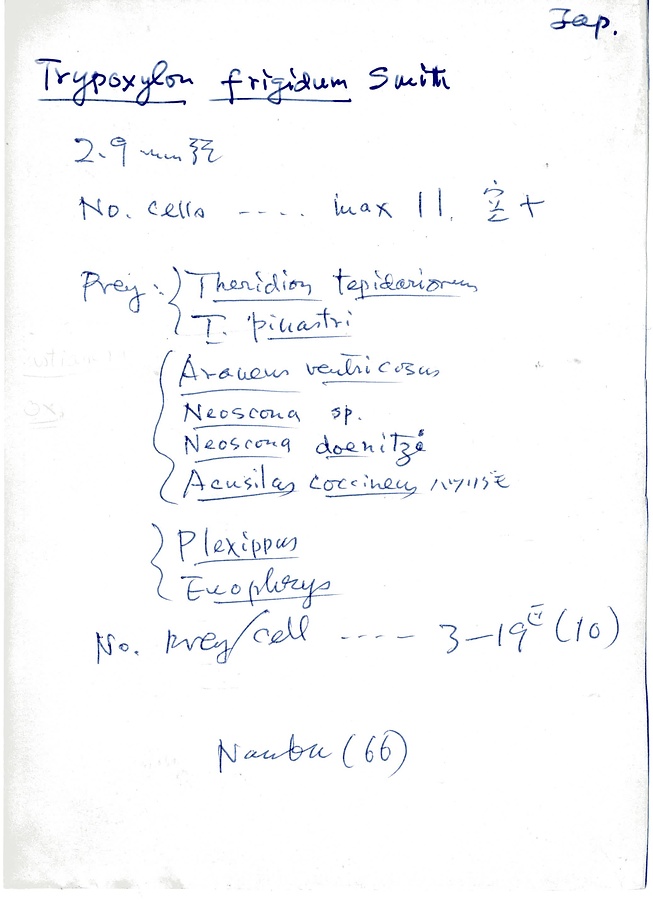 Jap.
Trypoxylon frigidum Smith
2.9 mm
No. cells ---- max 11. +
Prey: Theridion tepidariorum
T. pinastri
Araneus ventricosus
Neoscona sp.
Neoscona doenitzi
Acusilas coccineus
Plexippus
Euophrys
No. prey/cell ---- 3-19 (10)
Nambu (66)